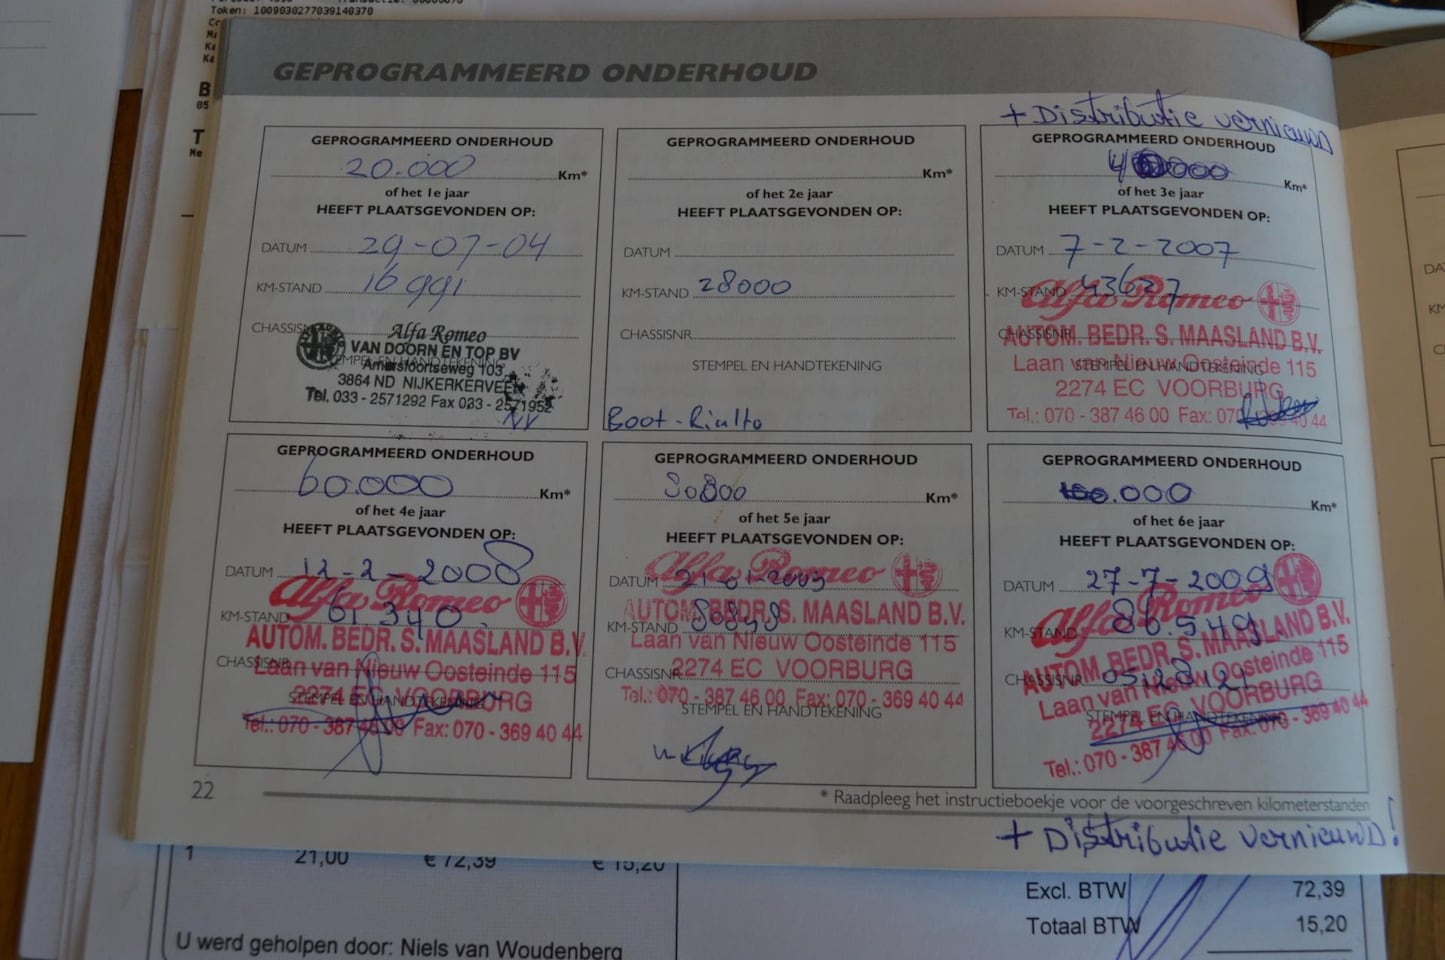 Token: 1009030277039140370
GEPROGRAMMEERD ONDERHOUD
+ Distributie vernieuwD
GEPROGRAMMEERD ONDERHOUD
20.000 Km*
of het 1e jaar
HEEFT PLAATSGEVONDEN OP:
DATUM 29-07-04
KM-STAND 16991
CHASSISNR.
Alfa Romeo
VAN DOORN EN TOP BV
STEMPEL EN HANDTEKENING
Amersfoortseweg 103
3864 ND NIJKERKERVEEN
Tel. 033 - 2571292 Fax 033 - 2571952
GEPROGRAMMEERD ONDERHOUD
Km*
of het 2e jaar
HEEFT PLAATSGEVONDEN OP:
DATUM
KM-STAND 28000
CHASSISNR.
STEMPEL EN HANDTEKENING
Boot-Rialto
GEPROGRAMMEERD ONDERHOUD
Km*
of het 3e jaar
HEEFT PLAATSGEVONDEN OP:
DATUM 7-2-2007
KM-STAND
Alfa Romeo
CHASSISNR.
AUTOM. BEDR. S. MAASLAND B.V.
Laan van Nieuw Oosteinde 115
STEMPEL EN HANDTEKENING
2274 EC VOORBURG
Tel.: 070 - 387 46 00 Fax: 070 - 369 40 44
GEPROGRAMMEERD ONDERHOUD
60.000 Km*
of het 4e jaar
HEEFT PLAATSGEVONDEN OP:
DATUM 12-2-2008
Alfa Romeo
KM-STAND 61.340.
AUTOM. BEDR. S. MAASLAND B.V.
CHASSISNR.
Laan van Nieuw Oosteinde 115
STEMPEL EN HANDTEKENING
2274 EC VOORBURG
Tel.: 070 - 387 46 00 Fax: 070 - 369 40 44
GEPROGRAMMEERD ONDERHOUD
80800 Km*
of het 5e jaar
HEEFT PLAATSGEVONDEN OP:
Alfa Romeo
DATUM 21-01-2009
AUTOM. BEDR. S. MAASLAND B.V.
KM-STAND
Laan van Nieuw Oosteinde 115
CHASSISNR.
2274 EC VOORBURG
Tel.: 070 - 387 46 00 Fax: 070 - 369 40 44
STEMPEL EN HANDTEKENING
GEPROGRAMMEERD ONDERHOUD
.000 Km*
of het 6e jaar
HEEFT PLAATSGEVONDEN OP:
DATUM 27-7-2009
Alfa Romeo
KM-STAND 86.549.
AUTOM. BEDR. S. MAASLAND B.V.
CHASSISNR.
Laan van Nieuw Oosteinde 115
STEMPEL EN HANDTEKENING
2274 EC VOORBURG
Tel.: 070 - 387 46 00 Fax: 070 - 369 40 44
22
* Raadpleeg het instructieboekje voor de voorgeschreven kilometerstanden
+ Distributie vernieuwD!
1 21,00 € 72,39 € 15,20
Excl. BTW 72,39
Totaal BTW 15,20
U werd geholpen door: Niels van Woudenberg